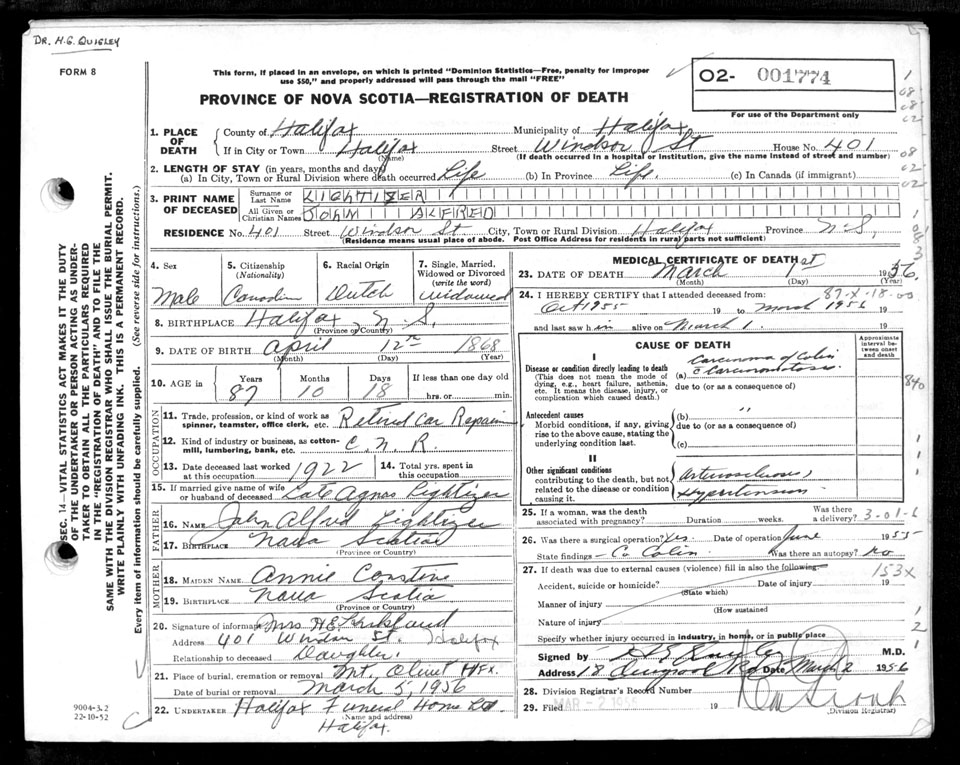 DR. H.G. QUIGLEY
FORM 8
This form, if placed in an envelope, on which is printed "Dominion Statistics—Free, penalty for improper
use $50," and properly addressed will pass through the mail "FREE"
O2- 001774
For use of the Department only
PROVINCE OF NOVA SCOTIA—REGISTRATION OF DEATH
1. PLACE OF DEATH { County of Halifax Municipality of Halifax
If in City or Town Halifax Street Windsor St House No. 401
(Name) (If death occurred in a hospital or institution, give the name instead of street and number)
2. LENGTH OF STAY (in years, months and days)
(a) In City, Town or Rural Division where death occurred Life (b) In Province Life (c) In Canada (if immigrant)
3. PRINT NAME OF DECEASED { Surname or Last Name LIGHTIZER
All Given or Christian Names JOHN ALFRED
RESIDENCE No. 401 Street Windsor St. City, Town or Rural Division Halifax Province N.S.
(Residence means usual place of abode. Post Office Address for residents in rural parts not sufficient)
4. Sex Male
5. Citizenship (Nationality) Canadian
6. Racial Origin Dutch
7. Single, Married, Widowed or Divorced (write the word) Widowed
8. BIRTHPLACE Halifax, N.S.
(Province or Country)
9. DATE OF BIRTH April 12th 1868
(Month) (Day) (Year)
10. AGE in Years 87 Months 10 Days 18 If less than one day old hrs. or min.
OCCUPATION
11. Trade, profession, or kind of work as spinner, teamster, office clerk, etc. Retired Car Repair
12. Kind of industry or business, as cotton-mill, lumbering, bank, etc. C.N.R.
13. Date deceased last worked at this occupation 1922 14. Total yrs. spent in this occupation
15. If married give name of wife or husband of deceased Late Agnes Lightizer
FATHER
16. NAME John Alfred Lightizer
17. BIRTHPLACE Nova Scotia
(Province or Country)
MOTHER
18. MAIDEN NAME Annie
19. BIRTHPLACE Nova Scotia
(Province or Country)
20. Signature of informant Mrs H.E. Kirkland
Address 401 Windsor St. Halifax
Relationship to deceased Daughter
21. Place of burial, cremation or removal Mt. Olivet HFX.
Date of burial or removal March 5, 1956
22. UNDERTAKER Halifax Funeral Home Ltd
(Name and address)
Halifax.
MEDICAL CERTIFICATE OF DEATH
23. DATE OF DEATH March 1st 1956
(Month) (Day) (Year)
87-X-18-00
24. I HEREBY CERTIFY that I attended deceased from:
Oct 1955 19 to March 1956 19
and last saw him alive on March 1. 19
CAUSE OF DEATH
Approximate interval between onset and death
I
Disease or condition directly leading to death
(This does not mean the mode of dying, e.g., heart failure, asthenia, etc. It means the disease, injury, or complication which caused death.)
(a) Carcinoma of Colin
c carcinomatosis
due to (or as a consequence of)
Antecedent causes
Morbid conditions, if any, giving rise to the above cause, stating the underlying condition last.
(b) "
due to (or as a consequence of)
(c)
II
Other significant conditions
contributing to the death, but not related to the disease or condition causing it.
Arteriosclerosis,
Hypertension
25. If a woman, was the death associated with pregnancy? Duration weeks. Was there a delivery? 3-01-6
26. Was there a surgical operation? Yes. Date of operation June 1955
State findings— Ca Colin Was there an autopsy? no
27. If death was due to external causes (violence) fill in also the following: 153X
Accident, suicide or homicide? Date of injury 19
(State which)
Manner of injury
(How sustained
Nature of injury
Specify whether injury occurred in industry, in home, or in public place
Signed by H G Quigley M.D.
Address 18 Date March 2 1956
28. Division Registrar's Record Number
29. Filed MAR - 2 1956 19
(Division Registrar)
SEC. 14—VITAL STATISTICS ACT MAKES IT THE DUTY
OF THE UNDERTAKER OR PERSON ACTING AS UNDER-
TAKER TO OBTAIN ALL THE PARTICULARS REQUIRED
IN THE "REGISTRATION OF DEATH" AND TO FILE THE
SAME WITH THE DIVISION REGISTRAR WHO SHALL ISSUE THE BURIAL PERMIT.
WRITE PLAINLY WITH UNFADING INK. THIS IS A PERMANENT RECORD.
Every item of information should be carefully supplied. (See reverse side for instructions.)
9004-3.2
22-10-52